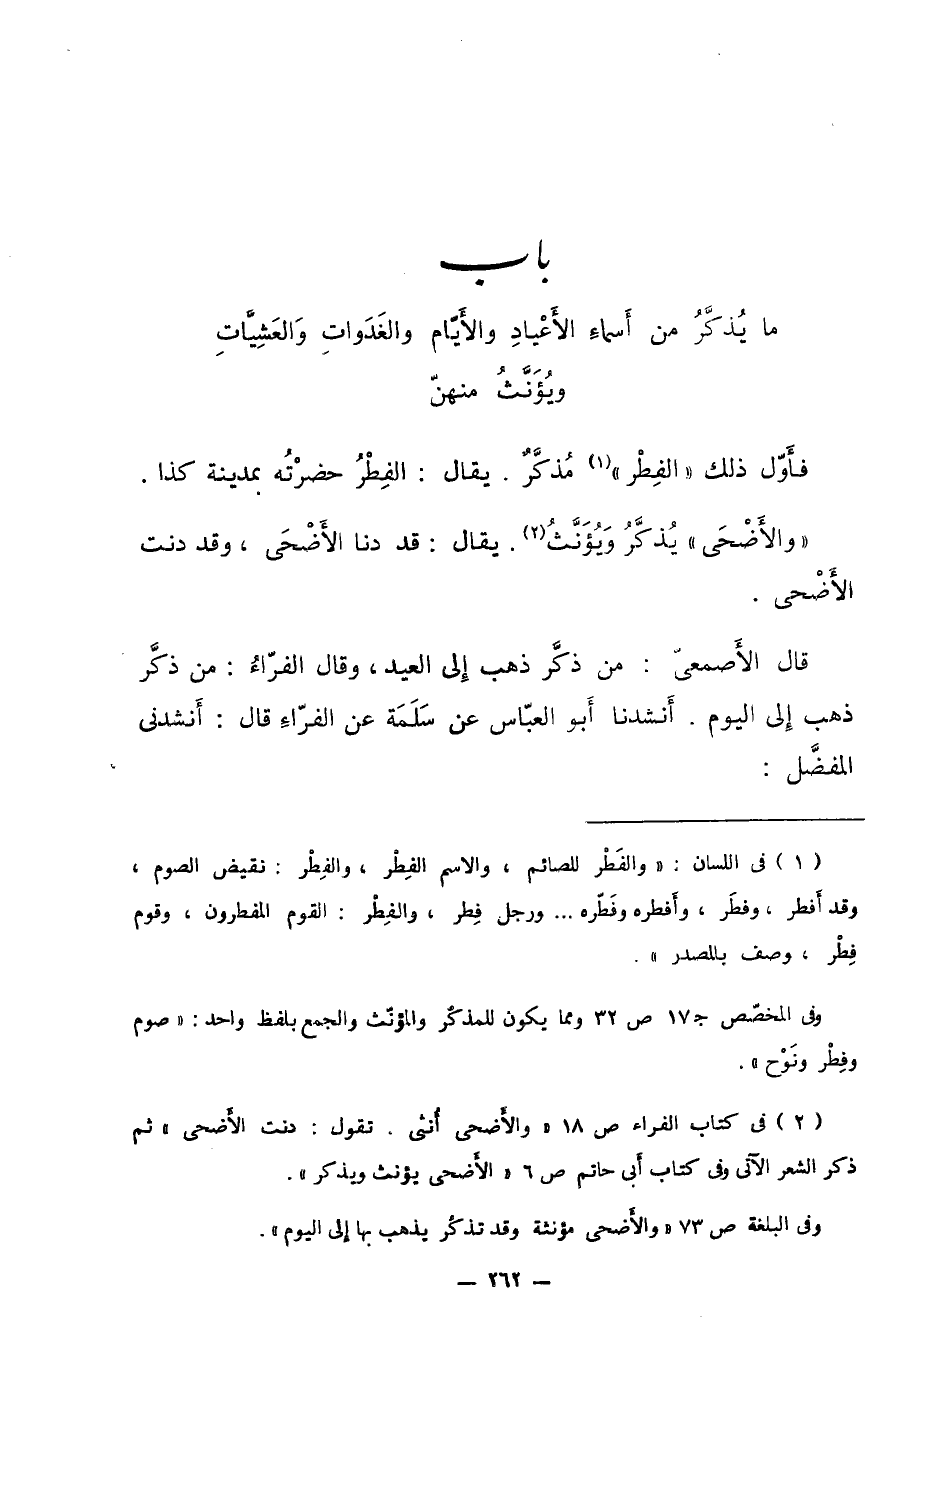 باب
ما يُذكَّرُ من أَسماء الأَعْيادِ والأَيَّام والغَدَواتِ وَالعَشِيَّاتِ
ويُؤَنَّثُ منهنّ
فأَوّل ذلك « الفِطْر »(١) مُذكَّرٌ . يقال : الفِطْرُ حضرْتُه بمدينة كذا .
« والأَضْحَى » يُذكَّرُ وَيُؤَنَّثُ(٢) . يقال : قد دنا الأَضْحَى ، وقد دنت
الأَضْحى .
قال الأَصمعىّ : من ذكَّر ذهب إلى العيد ، وقال الفرّاءُ : من ذكَّر
ذهب إلى اليوم . أَنشدنا أَبو العبّاس عن سَلَمَة عن الفرّاءِ قال : أَنشدنى
المفضَّل :
( ١ ) فى اللسان : « والفَطْر للصائم ، والاسم الفِطْر ، والفِطْر : نقيض الصوم ،
وقد أَفطر ، وفطَر ، وأَفطره وفَطّره ... ورجل فِطر ، والفِطْر : القوم المفطرون ، وقوم
فِطْر ، وصف بالمصدر » .
وفى المخصّص ج١٧ ص ٣٢ ومما يكون للمذكَّر والمؤنّث والجمع بلفظ واحد : « صوم
وفِطْر ونَوْح » .
( ٢ ) فى كتاب الفراء ص ١٨ « والأَضحى أُنثى . تقول : دنت الأَضحى » ثم
ذكر الشعر الآتى وفى كتاب أَبى حاتم ص ٦ « الأَضحى يؤنث ويذكر » .
وفى البلغة ص ٧٣ « والأَضحى مؤنثة وقد تذكَّر يذهب بها إلى اليوم » .
— ٢٦٢ —